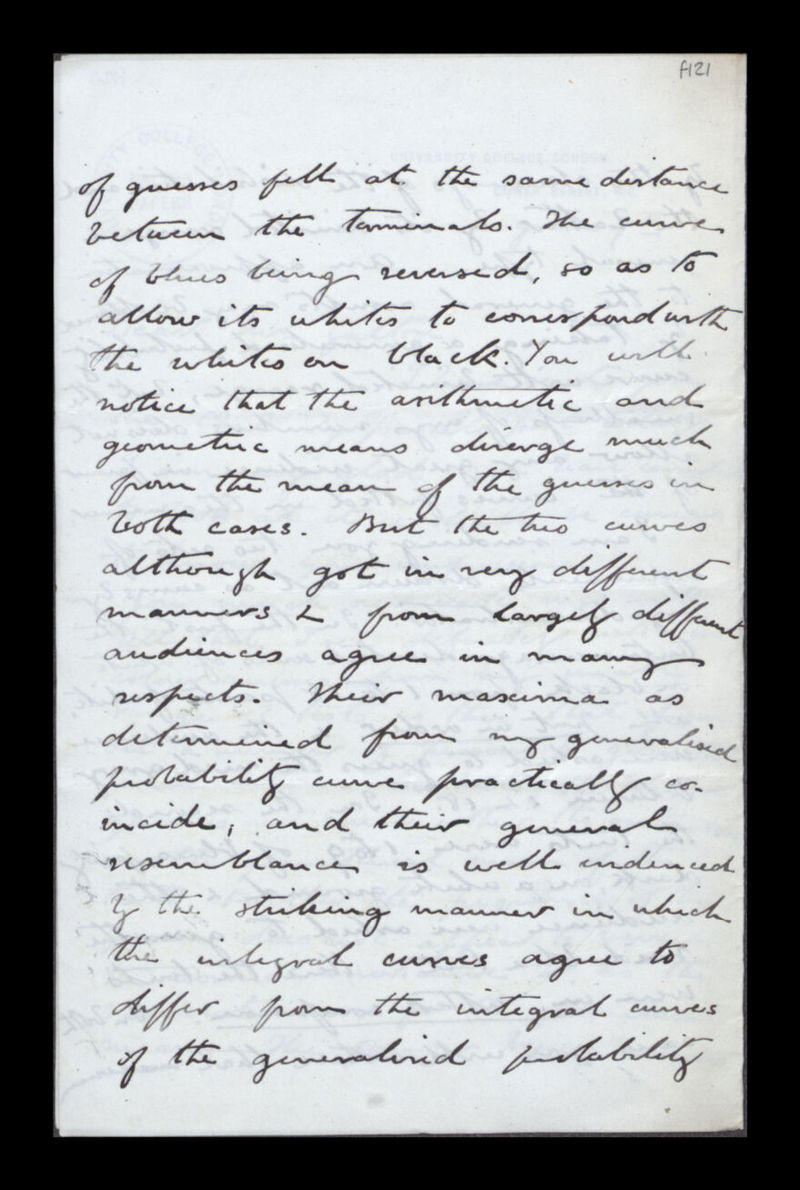 f121
of guesses fell at the same distance
between the terminals. The curve
of blues being reversed, so as to
allow its whites to correspond with
the whites on black. You will
notice that the arithmetic and
geometric means diverge much
from the mean of the guesses in
both cases. But the two curves
although got in very different
manners & from largely different
audiences agree in many
respects. Their maxima as
determined from my generalised
probability curve practically co-
incide, and their general
resemblance is well evidenced
by the striking manner in which
the integral curves agree to
differ from the integral curves
of the generalised probability